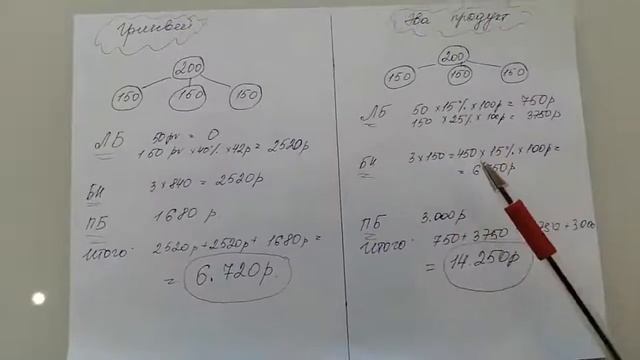 Гринвей
200
150 150 150
ЛБ 50 pv = 0
150 pv × 40% × 42р = 2520р
БН 3 × 840 = 2520р
ПБ 1680 р
Итого: 2520р + 2520р + 1680р =
= 6.720р.
Эва продукт
200
150 150 150
ЛБ 50 × 15% × 100р = 750р
150 × 25% × 100р = 3750р
БН 3 × 150 = 450 × 15% × 100р =
= 6 50р
ПБ 3.000р
Итого: 750 + 3750 750 + 3000
= 14.250р